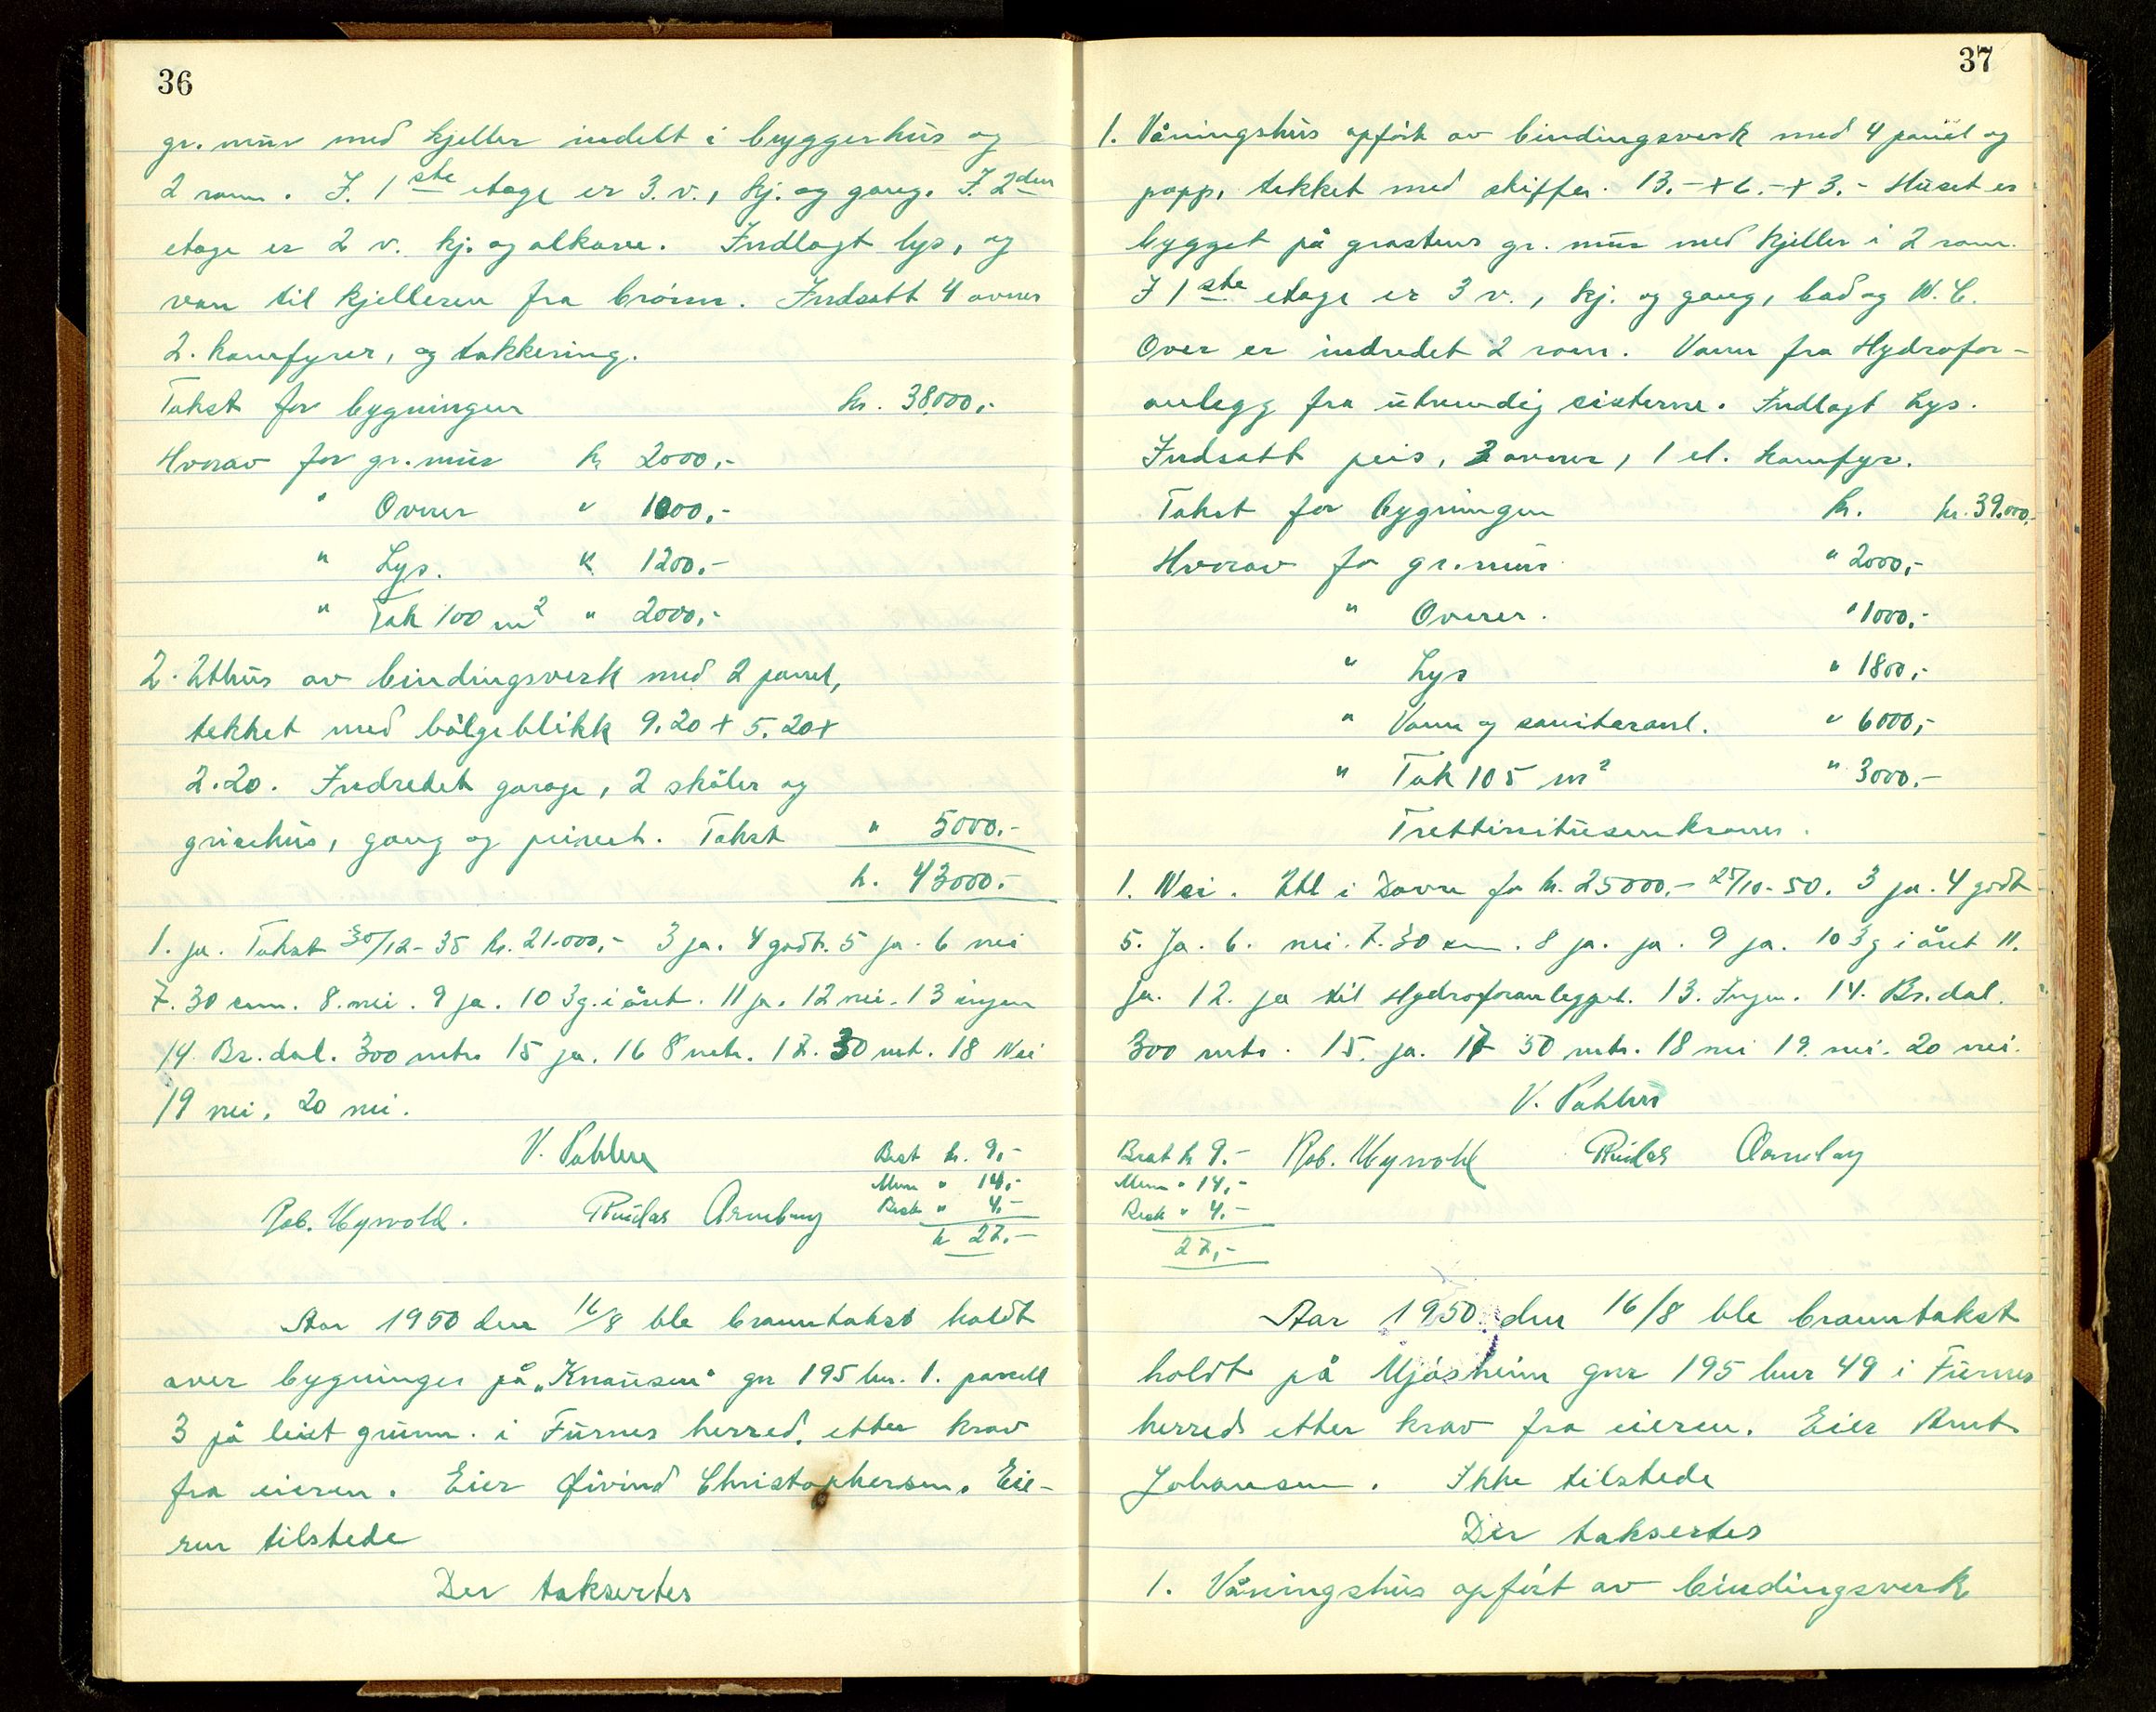 36
gr. mur med kjeller indelt i bryggerhus og
2 rom. I. 1ste etage er 3. v., kj. og gang. I. 2den
etage er 2 v. kj. og alkove. Indlagt lys, og
van til kjelleren fra brønn. Indsatt 4 ovner
2. komfyrer, og takkering.
Takst for bygningen kr. 38,000,-
Hvorav for gr. mur kr 2000,-
" Ovner " 1000,-
" Lys. " 1200,-
" Tak 100 m2 " 2000,-
2. Uthus av bindingsverk med 2 panel,
tekket med bølgeblikk 9.20 + 5.20 +
2.20. Indredet garage, 2 skåler og
grisehus, gang og privet. Takst " 5000.-
kr. 43000.-
1. ja. Takst 30/12-35 kr. 21.000,- 3 ja. 4 godt. 5 ja. 6 nei
7. 30 cm. 8. nei. 9 ja. 10 3 g. i året. 11 ja. 12 nei. 13 ingen
14. Br. dal. 300 mtr. 15 ja. 16 8 mtr. 17. 30 mt. 18 Nei
19 nei. 20 nei.
V. Pahlen
Best kr. 9,-
Mum " 14,-
Besk " 4,-
kr 27.-
Rob. Uyvold. Reidar Arneberg
Aar 1950 den 16/8 ble branntakst holdt
over bygninger på "Knausen" gr 195 bn. 1. parsell
3 på leiet grunn. i Furnes herred. etter krav
fra eieren. Eier Øivind Christophersen. Eie-
ren tilstede
Der taksertes
37
1. Våningshus opført av bindingsverk med 4 panel og
papp, tekket med skiffer. 13.- + 6.- + 3.- Huset er
bygget på gråstens gr. mur med kjeller i 2 rom.
I 1ste etage er 3 v., kj. og gang, bad og W.C.
Over er indredet 2 rom. Vann fra Hydrofor-
anlegg fra utvendig cisterne. Indlagt Lys.
Indsatt peis, 3 ovner, 1 el. komfyr.
Takst for bygningen kr. kr. 39.000,-
Hvorav for gr. mur " 2000,-
" Ovner. " 1000,-
" Lys " 1800,-
" Vann og sanitæranl. " 6000,-
" Tak 105 m2 " 3000.-
Trettinitusenkroner.
1. Nei. Utl i Dovre for kr. 25000,- 25/10-50. 3 ja. 4 godt
5. Ja. 6. nei. 7. 30 cm. 8 ja. ja. 9 ja. 10 3 g i året 11.
ja. 12. ja til Hydroforanlegget. 13. Ingen. 14. Br. dal.
300 mtr. 15. ja. 17 50 mtr. 18 nei 19. nei. 20 nei.
V. Pahlen
Brat kr 9.- Rob. Uyvold Reidar Arneberg
Mum " 14,-
Besk " 4.-
27,-
Aar 1950 den 16/8 ble branntakst
holdt på Mjøsheim gnr 195 bnr 49 i Furnes
herred etter krav fra eieren. Eier Arnt
Johansen. Ikke tilstede
Der taksertes
1. Våningshus opført av bindingsverk